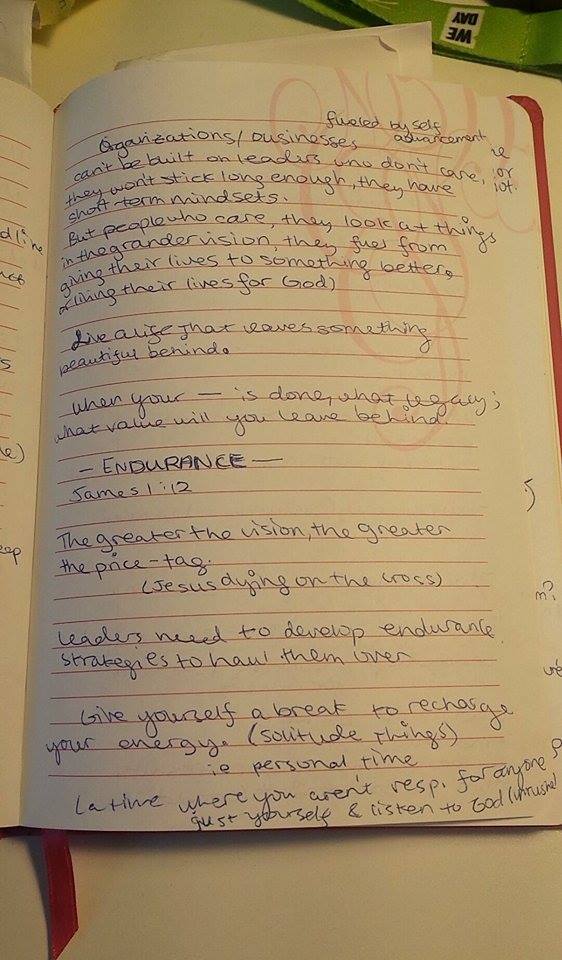 WE
DAY
fueled by self
Organizations/businesses advancement ie
can't be built on leaders who don't care, or
they won't stick long enough, they have
short-term mindsets.
But people who care, they look at things
in the grander vision, they fuel from
giving their lives to something better,
or living their lives for God)
Live a life that leaves something
beautiful behind.
when your — is done, what legacy;
what value will you leave behind.
— ENDURANCE —
James 1:12
The greater the vision, the greater
the price-tag.
(Jesus dying on the cross)
Leaders need to develop endurance
strategies to haul them over
Give yourself a break to recharge
your energy. (solitude things)
ie personal time
(a time where you aren't resp. for anyone
just yourself & listen to God